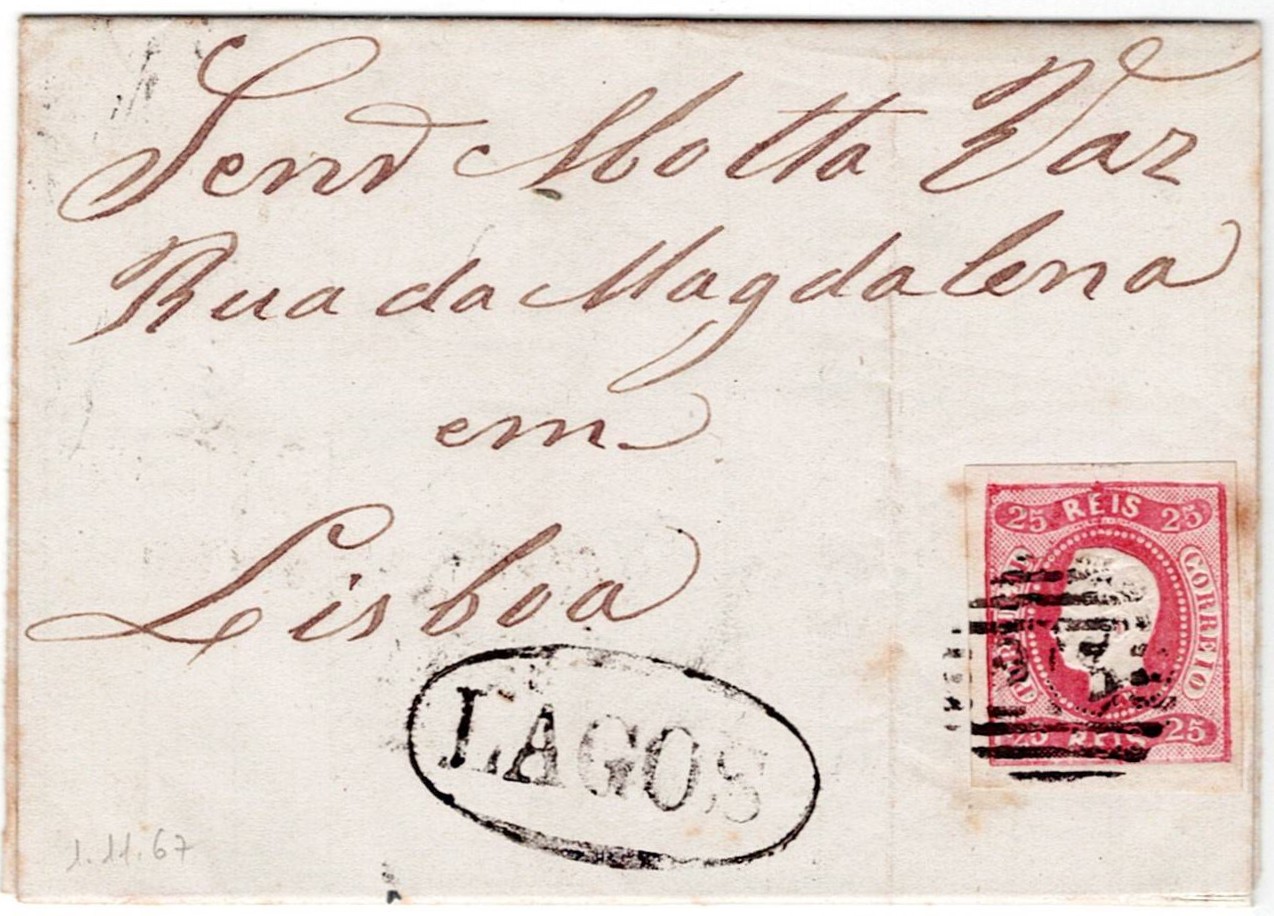 Motta Vaz
Rua da Magdalena
em
Lisboa
LAGOS
25 REIS 25
CORREIO
25 REIS 25
1.11.67